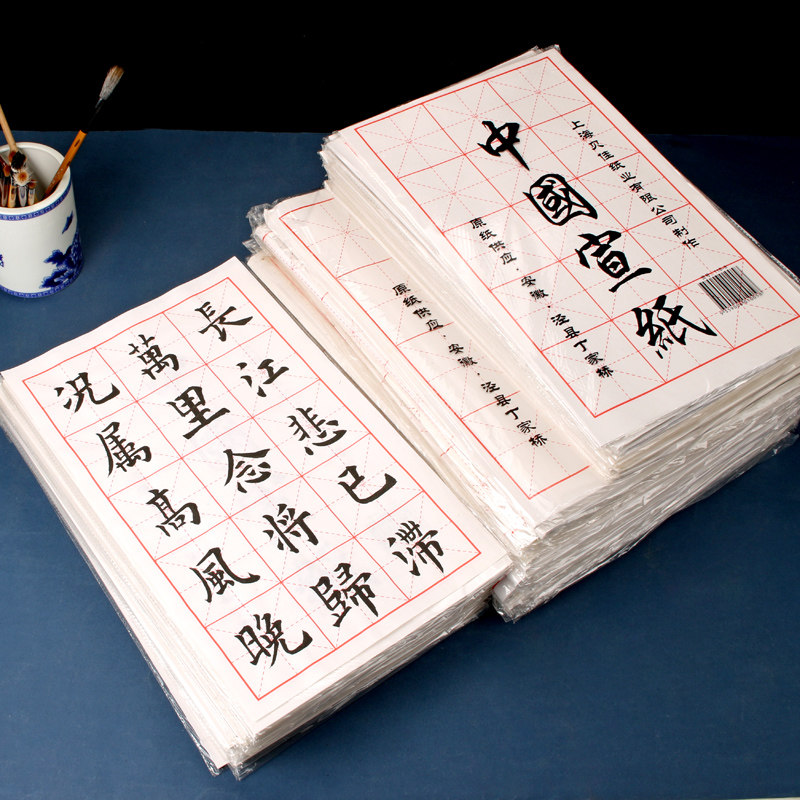 上海贝佳纸业有限公司制作
中國宣紙
原纸供应．安徽．泾县丁家桥
原纸供应．安徽．泾县丁家桥
長江悲已滯
萬里念將歸
况属高風晚